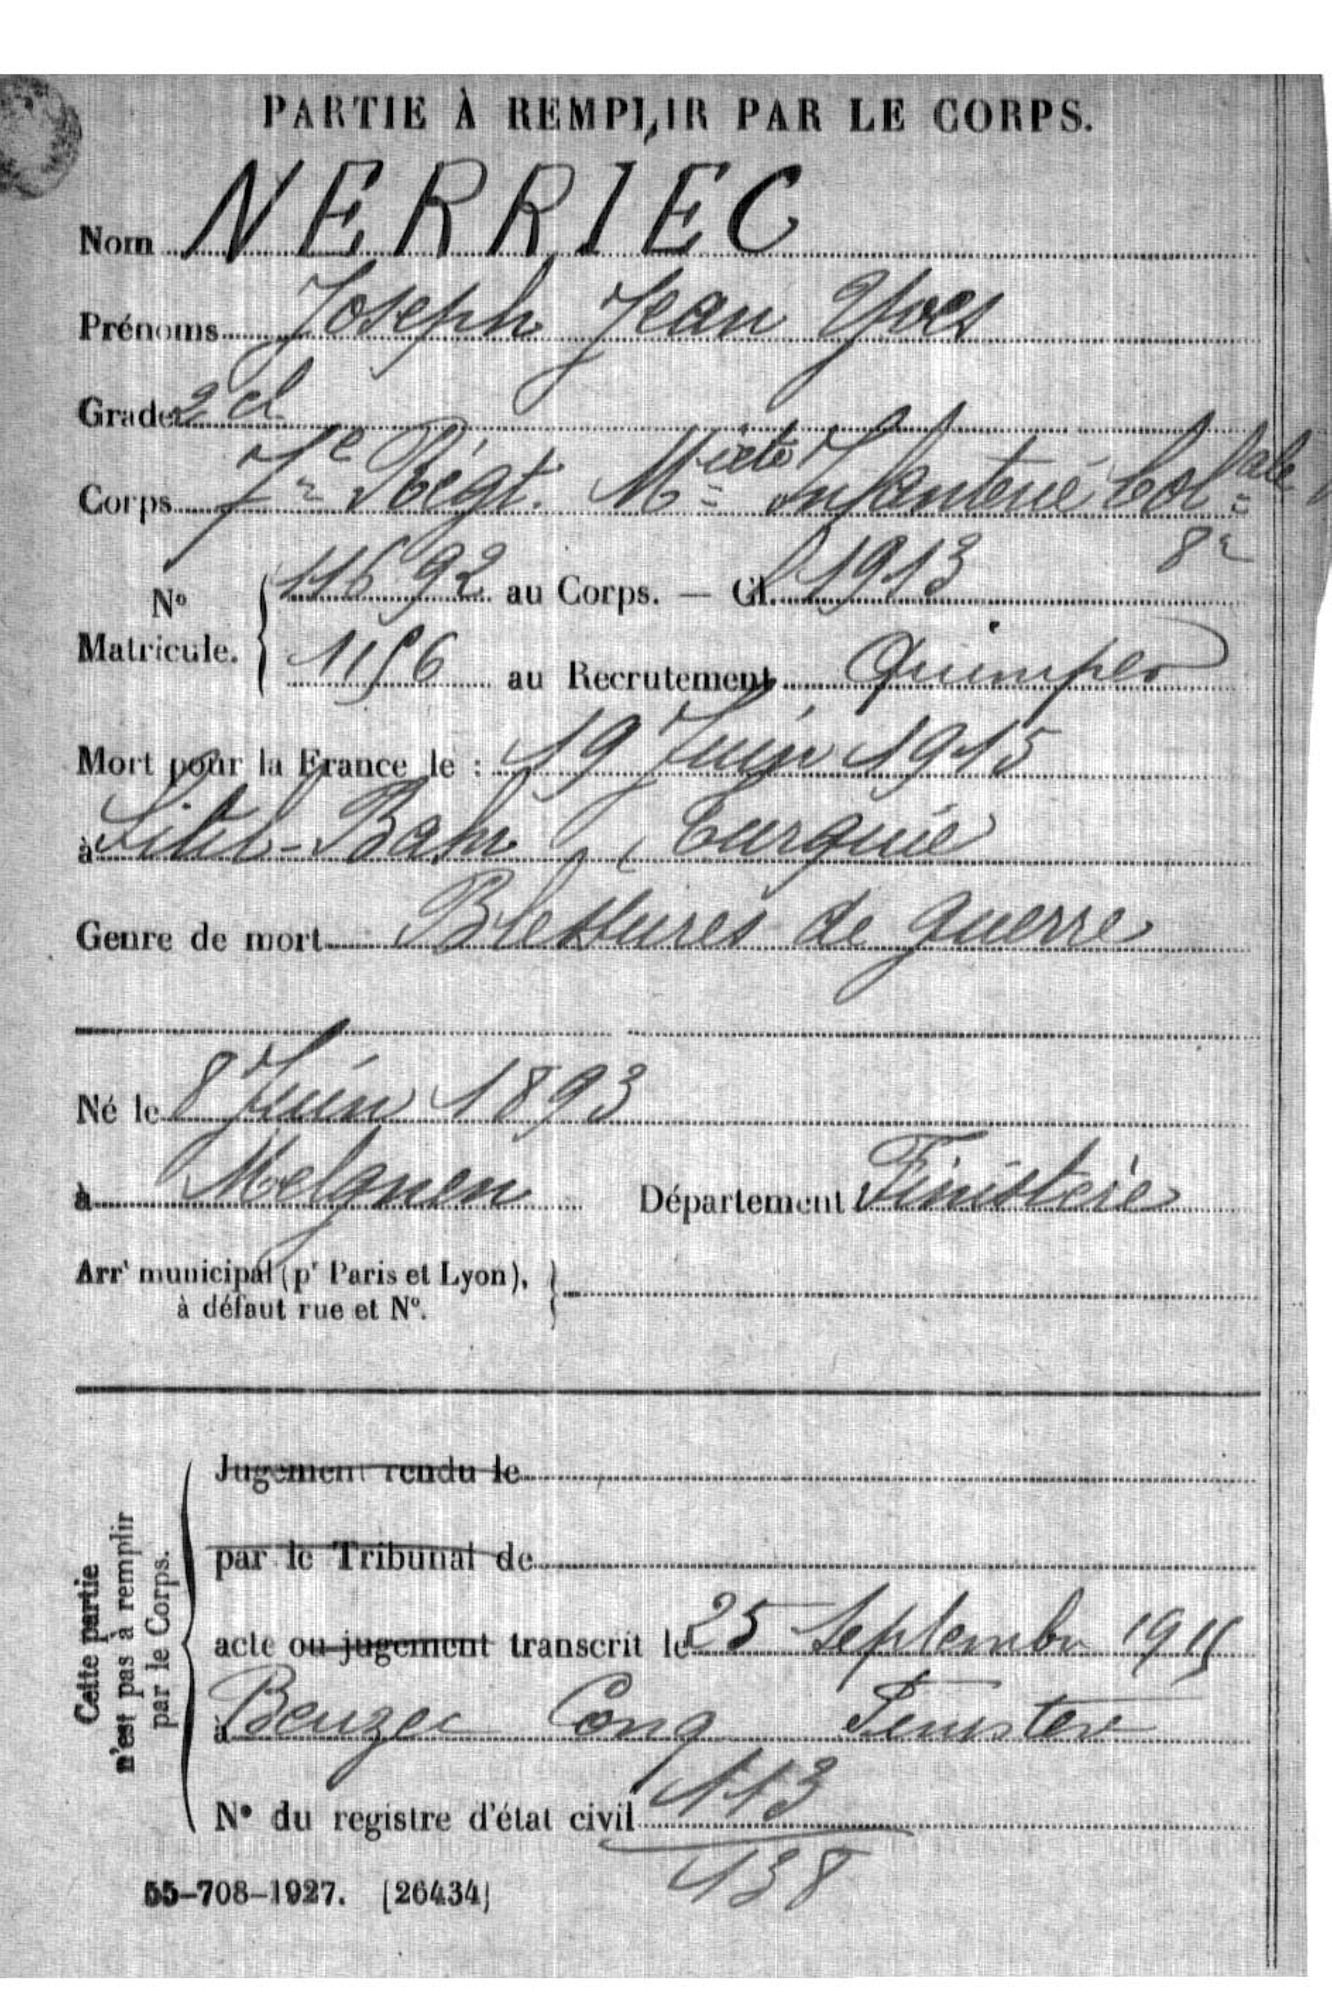 PARTIE À REMPLIR PAR LE CORPS.
Nom NERRIEC
Prénoms Joseph Jean Yves
Grade 2e cl
Corps 7e Régt. Mixte Infanterie Colale
8e
No Matricule. 11692 au Corps. — Cl. 1913
1156 au Recrutement Quimper
Mort pour la France le : 19 Juin 1915
à Sitil-Bahr (Turquie
Genre de mort Blessures de guerre
Né le 8 Juin 1893
à Melgven Département Finistère
Arrt municipal (pr Paris et Lyon),
à défaut rue et No.
Cette partie
n'est pas à remplir
par le Corps.
Jugement rendu le
par le Tribunal de
acte ou jugement transcrit le 25 Septembre 1915
à Beuzec Conq Finistere
No du registre d'état civil 113
138
55-708-1927. [26434]